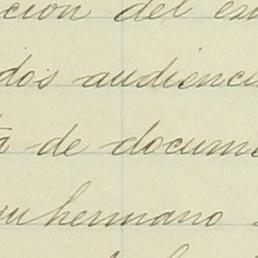 ción del ex
dos audiencia
a de docume
su hermano